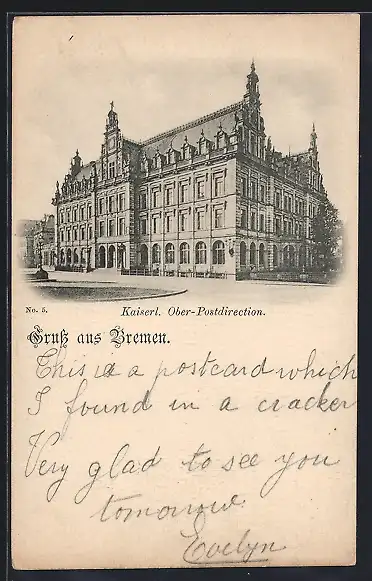 No. 5.
Kaiserl. Ober-Postdirection.
Gruß aus Bremen.
This is a postcard which
I found in a cracker
Very glad to see you
tomorrow
Evelyn